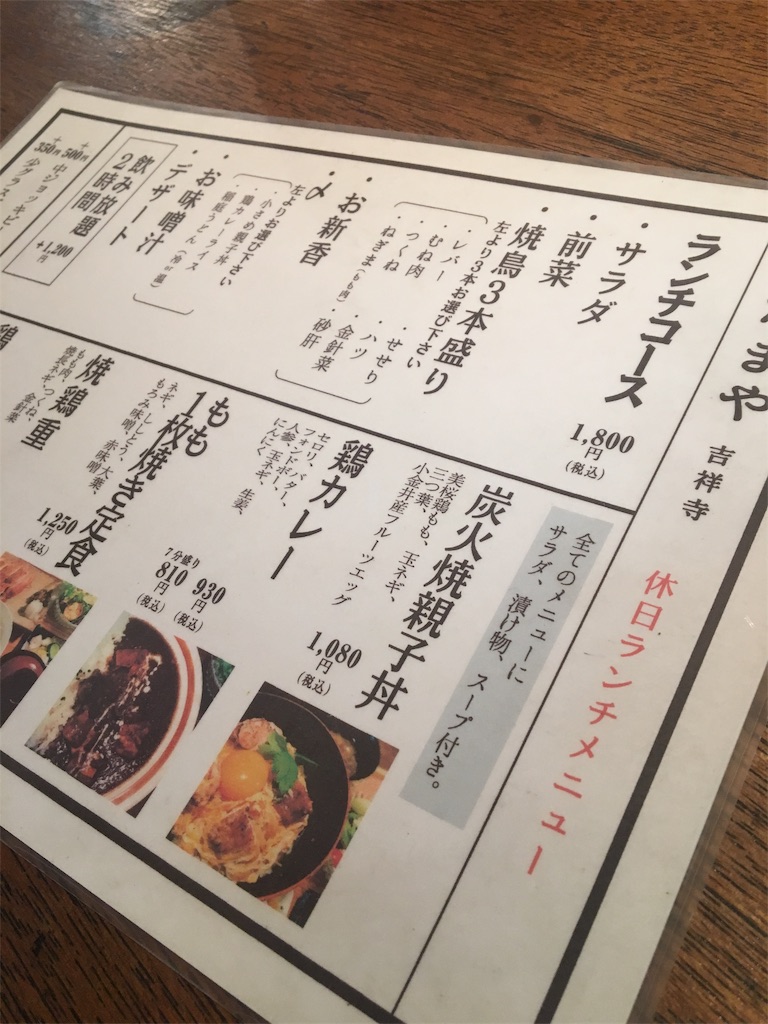 まや 吉祥寺
休日ランチメニュー
ランチコース
1,800円(税込)
・サラダ
・前菜
・焼鳥3本盛り
左より3本お選び下さい
・レバー
・むね肉
・つくね
・ねぎま(もも肉)
・せせり
・ハツ
・金針菜
・砂肝
・お新香
・〆
左よりお選び下さい
・小さめ親子丼
・鶏カレーライス
・稲庭うどん(冷or温)
・お味噌汁
・デザート
飲み放題
2時間
+1,200
+500円 中ジョッキビ
+350円
全てのメニューに
サラダ、漬け物、スープ付き。
炭火焼親子丼
美桜鶏もも、玉ネギ、
三つ葉、
小金井産フルーツエッグ
1,080円(税込)
鶏カレー
セロリ、バター、
フォンドボー、
人参、玉ネギ、生姜、
にんにく
930円(税込)
7分盛り 810円(税込)
もも
1枚焼き定食
ネギ、ししとう、大葉、
もろみ味噌、赤味噌
1,250円(税込)
焼鶏重
もも肉、つくね、
焼長ネギ、金針菜
鶏